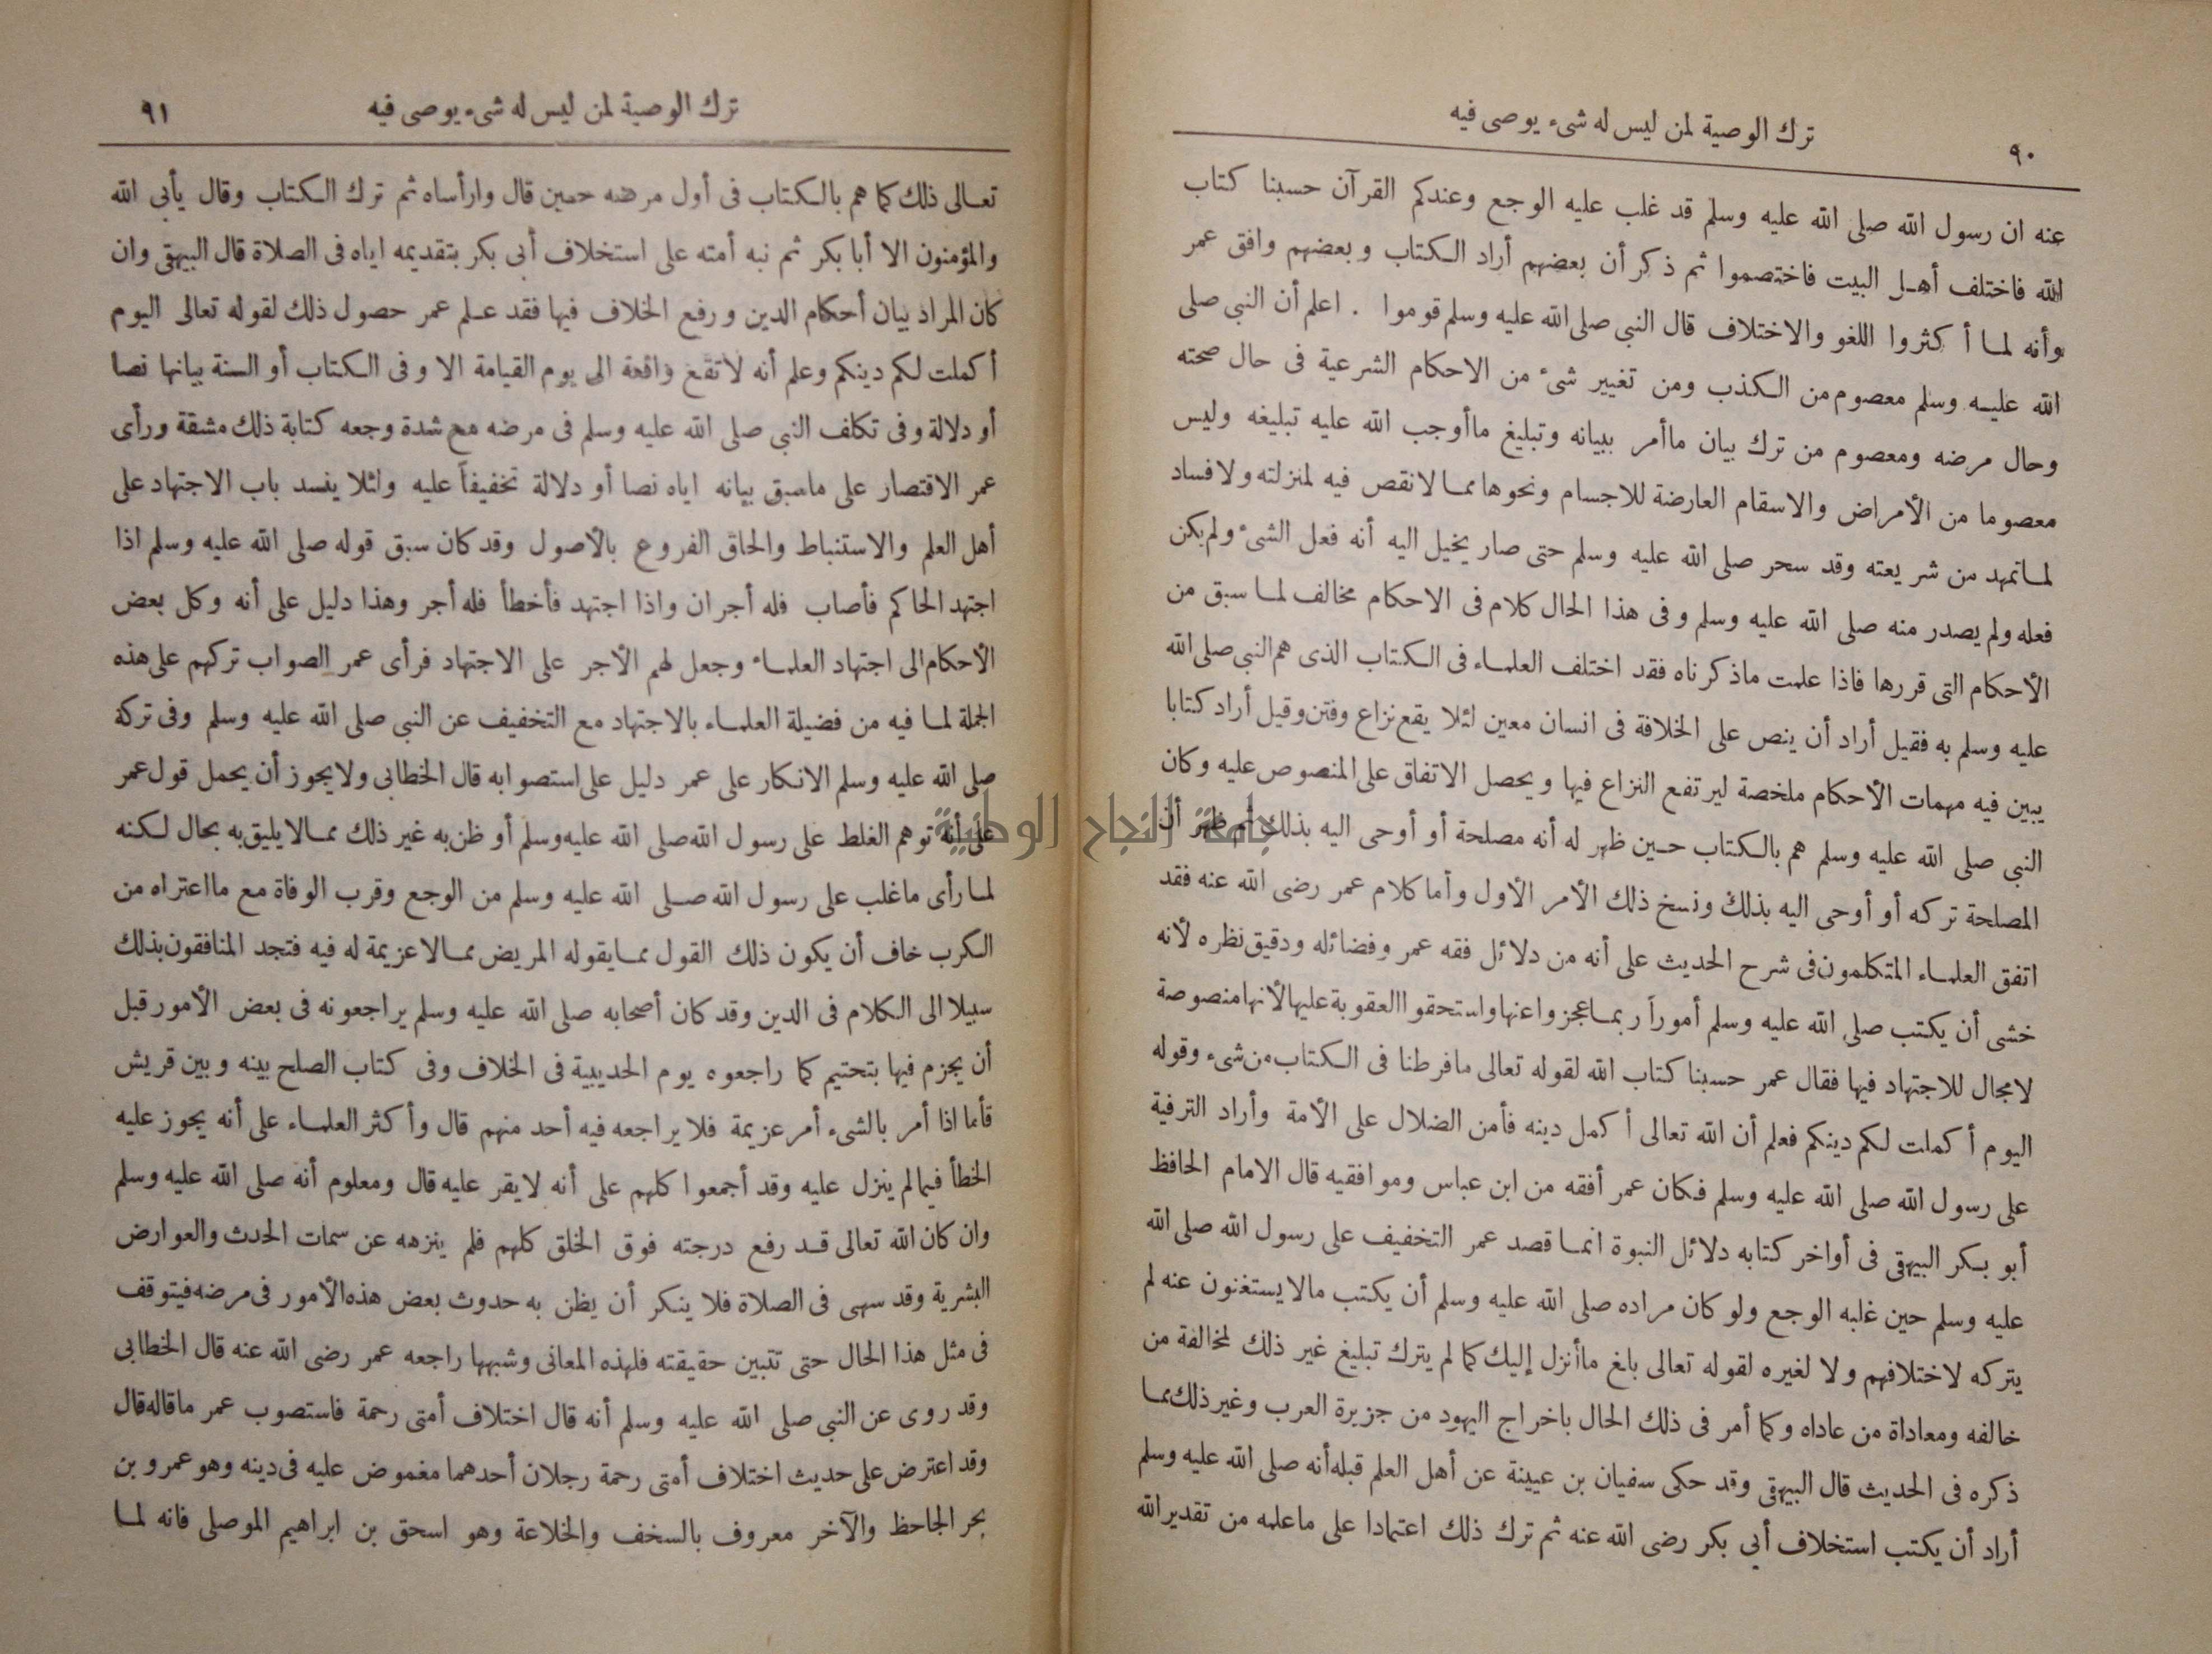 ترك الوصية لمن ليس له شىء يوصى فيه
٩٠
عنه ان رسول الله صلى الله عليه وسلم قد غلب عليه الوجع وعندكم القرآن حسبنا كتاب
الله فاختلف أهل البيت فاختصموا ثم ذكر أن بعضهم أراد الكتاب وبعضهم وافق عمر
وأنه لما أكثروا اللغو والاختلاف قال النبى صلى الله عليه وسلم قوموا . اعلم أن النبى صلى
الله عليه وسلم معصوم من الكذب ومن تغيير شىء من الاحكام الشرعية فى حال صحته
وحال مرضه ومعصوم من ترك بيان ماأمر ببيانه وتبليغ ماأوجب الله عليه تبليغه وليس
معصوما من الأمراض والاسقام العارضة للاجسام ونحوها مما لانقص فيه لمنزلته ولا فساد
لما تمهد من شريعته وقد سحر صلى الله عليه وسلم حتى صار يخيل اليه أنه فعل الشىء ولم يكن
فعله ولم يصدر منه صلى الله عليه وسلم وفى هذا الحال كلام فى الاحكام مخالف لما سبق من
الأحكام التى قررها فاذا علمت ماذكرناه فقد اختلف العلماء فى الكتاب الذى هم النبى صلى الله
عليه وسلم به فقيل أراد أن ينص على الخلافة فى انسان معين لئلا يقع نزاع وفتن وقيل أراد كتابا
يبين فيه مهمات الأحكام ملخصة ليرتفع النزاع فيها ويحصل الاتفاق على المنصوص عليه وكان
النبى صلى الله عليه وسلم هم بالكتاب حين ظهر له أنه مصلحة أو أوحى اليه بذلك ثم ظهر أن
المصلحة تركه أو أوحى اليه بذلك ونسخ ذلك الأمر الأول وأما كلام عمر رضى الله عنه فقد
اتفق العلماء المتكلمون فى شرح الحديث على أنه من دلائل فقه عمر وفضائله ودقيق نظره لأنه
خشى أن يكتب صلى الله عليه وسلم أموراً ربما عجزوا عنها واستحقوا العقوبة عليها لأنها منصوصة
لامجال للاجتهاد فيها فقال عمر حسبنا كتاب الله لقوله تعالى مافرطنا فى الكتاب من شىء وقوله
اليوم أكملت لكم دينكم فعلم أن الله تعالى أكمل دينه فأمن الضلال على الأمة وأراد الترفية
على رسول الله صلى الله عليه وسلم فكان عمر أفقه من ابن عباس وموافقيه قال الامام الحافظ
أبو بكر البيهقى فى أواخر كتابه دلائل النبوة انما قصد عمر التخفيف على رسول الله صلى الله
عليه وسلم حين غلبه الوجع ولو كان مراده صلى الله عليه وسلم أن يكتب مالا يستغنون عنه لم
يتركه لاختلافهم ولا لغيره لقوله تعالى بلغ ماأنزل إليك كما لم يترك تبليغ غير ذلك لمخالفة من
خالفه ومعاداة من عاداه وكما أمر فى ذلك الحال باخراج اليهود من جزيرة العرب وغير ذلك مما
ذكره فى الحديث قال البيهقى وقد حكى سفيان بن عيينة عن أهل العلم قبله أنه صلى الله عليه وسلم
أراد أن يكتب استخلاف أبى بكر رضى الله عنه ثم ترك ذلك اعتمادا على ماعلمه من تقدير الله
ترك الوصية لمن ليس له شىء يوصى فيه
٩١
تعالى ذلك كما هم بالكتاب فى أول مرضه حين قال وارأساه ثم ترك الكتاب وقال يأبى الله
والمؤمنون الا أبا بكر ثم نبه أمته على استخلاف أبى بكر بتقديمه اياه فى الصلاة قال البيهقى وان
كان المراد بيان أحكام الدين ورفع الخلاف فيها فقد علم عمر حصول ذلك لقوله تعالى اليوم
أكملت لكم دينكم وعلم أنه لاتقع واقعة الى يوم القيامة الا وفى الكتاب أو السنة بيانها نصا
أو دلالة وفى تكلف النبى صلى الله عليه وسلم فى مرضه مع شدة وجعه كتابة ذلك مشقة ورأى
عمر الاقتصار على ماسبق بيانه اياه نصا أو دلالة تخفيفاً عليه ولئلا ينسد باب الاجتهاد على
أهل العلم والاستنباط والحاق الفروع بالأصول وقد كان سبق قوله صلى الله عليه وسلم اذا
اجتهد الحاكم فأصاب فله أجران واذا اجتهد فأخطأ فله أجر وهذا دليل على أنه وكل بعض
الأحكام الى اجتهاد العلماء وجعل لهم الأجر على الاجتهاد فرأى عمر الصواب تركهم على هذه
الجملة لما فيه من فضيلة العلماء بالاجتهاد مع التخفيف عن النبى صلى الله عليه وسلم وفى تركه
صلى الله عليه وسلم الانكار على عمر دليل على استصوابه قال الخطابى ولا يجوز أن يحمل قول عمر
على أنه توهم الغلط على رسول الله صلى الله عليه وسلم أو ظن به غير ذلك مما لا يليق به بحال لكنه
لما رأى ماغلب على رسول الله صلى الله عليه وسلم من الوجع وقرب الوفاة مع مااعتراه من
الكرب خاف أن يكون ذلك القول مما يقوله المريض مما لا عزيمة له فيه فتجد المنافقون بذلك
سبيلا الى الكلام فى الدين وقد كان أصحابه صلى الله عليه وسلم يراجعونه فى بعض الأمور قبل
أن يجزم فيها بتحتيم كما راجعوه يوم الحديبية فى الخلاف وفى كتاب الصلح بينه وبين قريش
فأما اذا أمر بالشىء أمر عزيمة فلا يراجعه فيه أحد منهم قال وأكثر العلماء على أنه يجوز عليه
الخطأ فيما لم ينزل عليه وقد أجمعوا كلهم على أنه لايقر عليه قال ومعلوم أنه صلى الله عليه وسلم
وان كان الله تعالى قد رفع درجته فوق الخلق كلهم فلم ينزهه عن سمات الحدث والعوارض
البشرية وقد سهى فى الصلاة فلا ينكر أن يظن به حدوث بعض هذه الأمور فى مرضه فيتوقف
فى مثل هذا الحال حتى تتبين حقيقته فلهذه المعانى وشبهها راجعه عمر رضى الله عنه قال الخطابى
وقد روى عن النبى صلى الله عليه وسلم أنه قال اختلاف أمتى رحمة فاستصوب عمر ماقاله قال
وقد اعترض على حديث اختلاف أمتى رحمة رجلان أحدهما مغموض عليه فى دينه وهو عمرو بن
بحر الجاحظ والآخر معروف بالسخف والخلاعة وهو اسحق بن ابراهيم الموصلى فانه لما
جامعة النجاح الوطنية